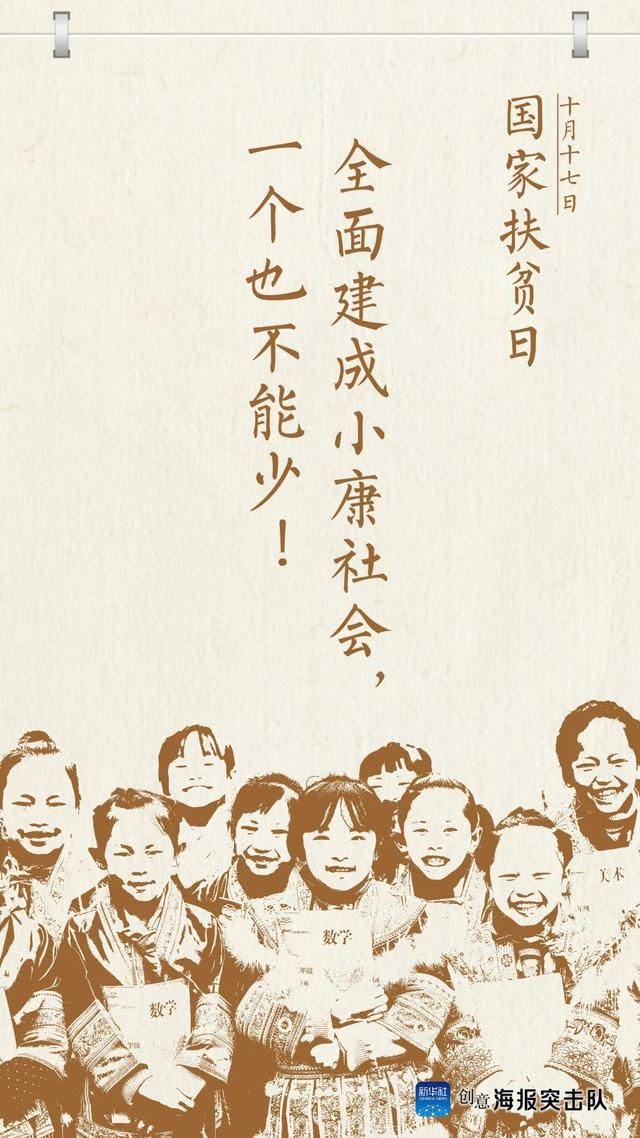 十月十七日
国家扶贫日
全面建成小康社会，
一个也不能少！
美术
数学
年级
数学
年级
新华社
XINHUA NEWS
创意海报突击队